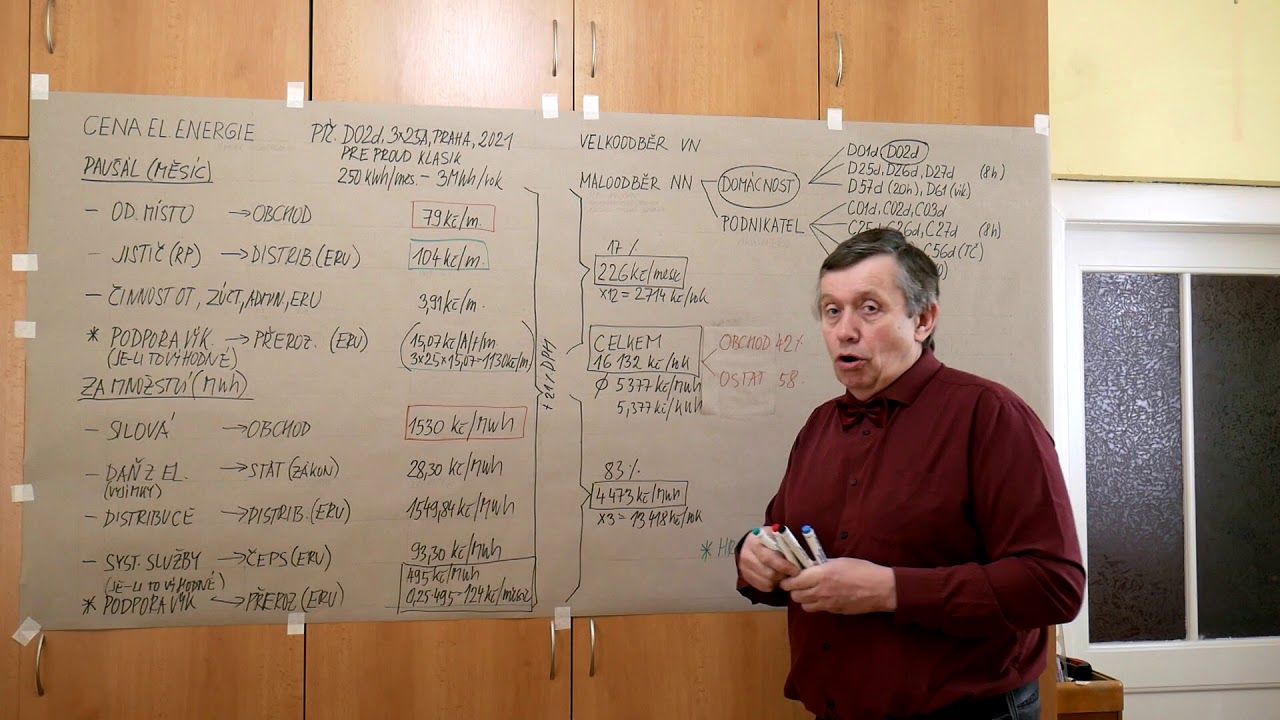 CENA EL. ENERGIE
PŘ. D02d, 3×25A, PRAHA, 2021
PRE PROUD KLASIK
250 kWh/měs. – 3MWh/rok
PAUŠÁL (MĚSÍC)
– OD. MÍSTO → OBCHOD 79 kč/m.
– JISTIČ (RP) → DISTRIB (ERU) 104 kč/m.
– ČINNOST OT, ZÚCT, ADMIN, ERU 3,91 kč/m.
* PODPORA VÝK. → PŘEROZ. (ERU) (15,07 kč/A/f/m
(JE-LI TO VÝHODNÉ) 3×25×15,07=1130 kč/m)
ZA MNOŽSTVÍ (MWh)
– SILOVÁ → OBCHOD 1530 kč/MWh
– DAŇ Z EL. → STÁT (ZÁKON) 28,30 kč/MWh
(VÝJIMKY)
– DISTRIBUCE → DISTRIB. (ERU) 1549,84 kč/MWh
– SYST. SLUŽBY → ČEPS (ERU) 93,30 kč/MWh
(JE-LI TO VÝHODNÉ) 495 kč/MWh
* PODPORA VÝK → PŘEROZ (ERU) 0,25·495=124 kč/měsíc
+ 21% DPH
VELKOODBĚR VN
MALOODBĚR NN
DOMÁCNOST
D01d, D02d
D25d, D26d, D27d (8h)
D57d (20h), D61 (vík)
PODNIKATEL
C01d, C02d, C03d
C25d, C26d, C27d (8h)
C56d (TČ)
17 %
226 kč/měsíc
×12 = 2714 kč/rok
CELKEM
16 132 kč/rok
OBCHOD 42%
OSTAT 58
Ø 5377 kč/MWh
5,377 kč/kWh
83 %
4473 kč/MWh
×3 = 13418 kč/rok